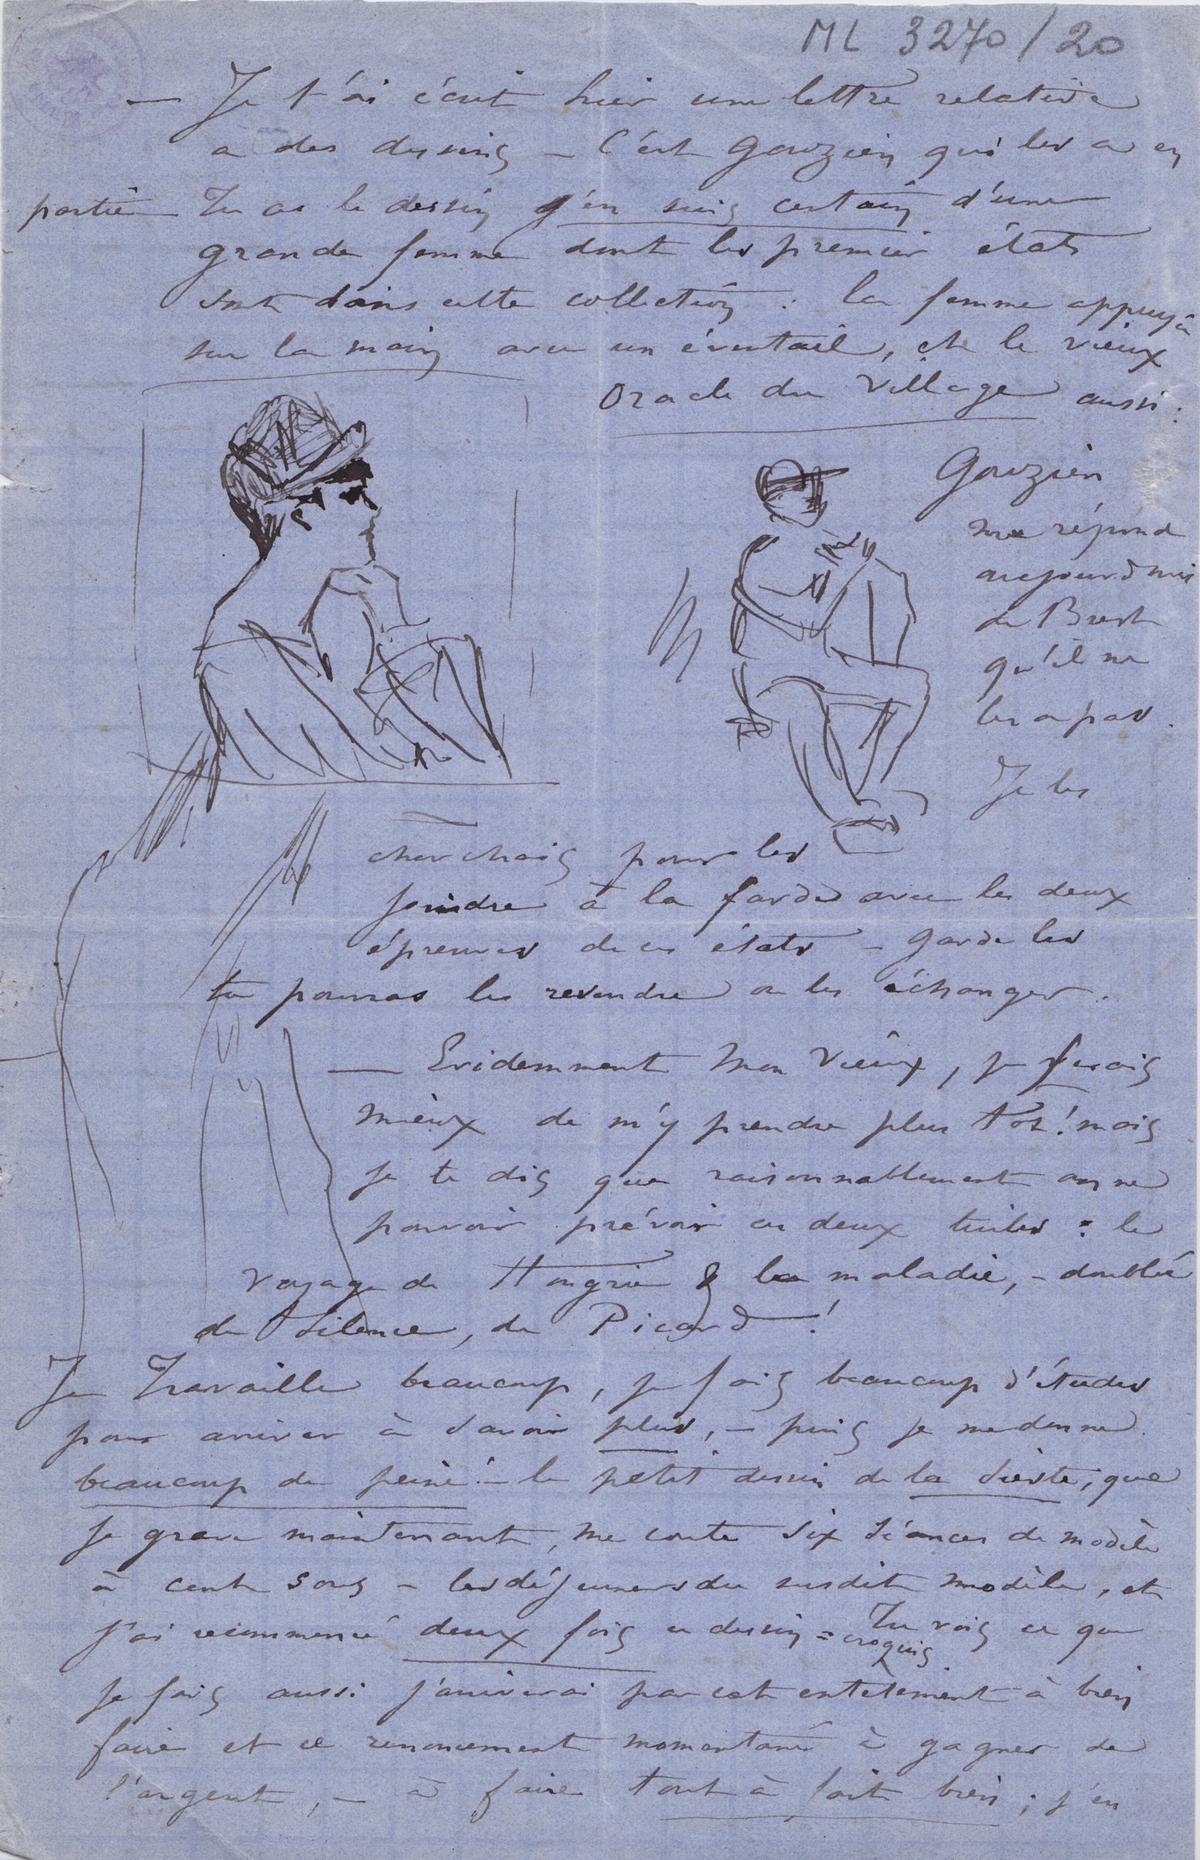 ML 3270/20
— Je t'ai écrit hier une lettre relative
a des dessins — C'est Gouzien qui les a en
partie Tu as le dessin j'en suis certain d'une
grande femme dont les premier états
sont dans cette collection : la femme appuyée
sur la main avec un éventail, et le vieux
Oracle du Village aussi.
Gouzien
me répond
aujourd'hui
de Brest
qu'il ne
les a pas.
Je les
cherchais pour les
joindre à la farde avec les deux
épreuves de ces états — garde les
tu pourras les revendre ou les échanger.
— Evidemment mon Vieux, je ferais
mieux de m'y prendre plus tôt! mais
je te dis que raisonnablement on ne
pouvoir prévoir ces deux tuiles : le
voyage de Hongrie & la maladie, — doublée
du Silence, de Picard !
Je Travaille beaucoup, je fais beaucoup d'études
pour arriver à savoir plus, — puis je me donne
beaucoup de peine! — le petit dessin de la Sieste, que
je grave maintenant, me coute six séances de modèle
à cent sous — les déjeuners du susdit modèle, et
j'ai recommencé deux fois ce dessin = croquis Tu vois ce que
je fais aussi j'arriverai par cet entêtement à bien
faire et ce renoncement momentané à gagner de
l'argent, — à faire tout à fait bien ; j'en